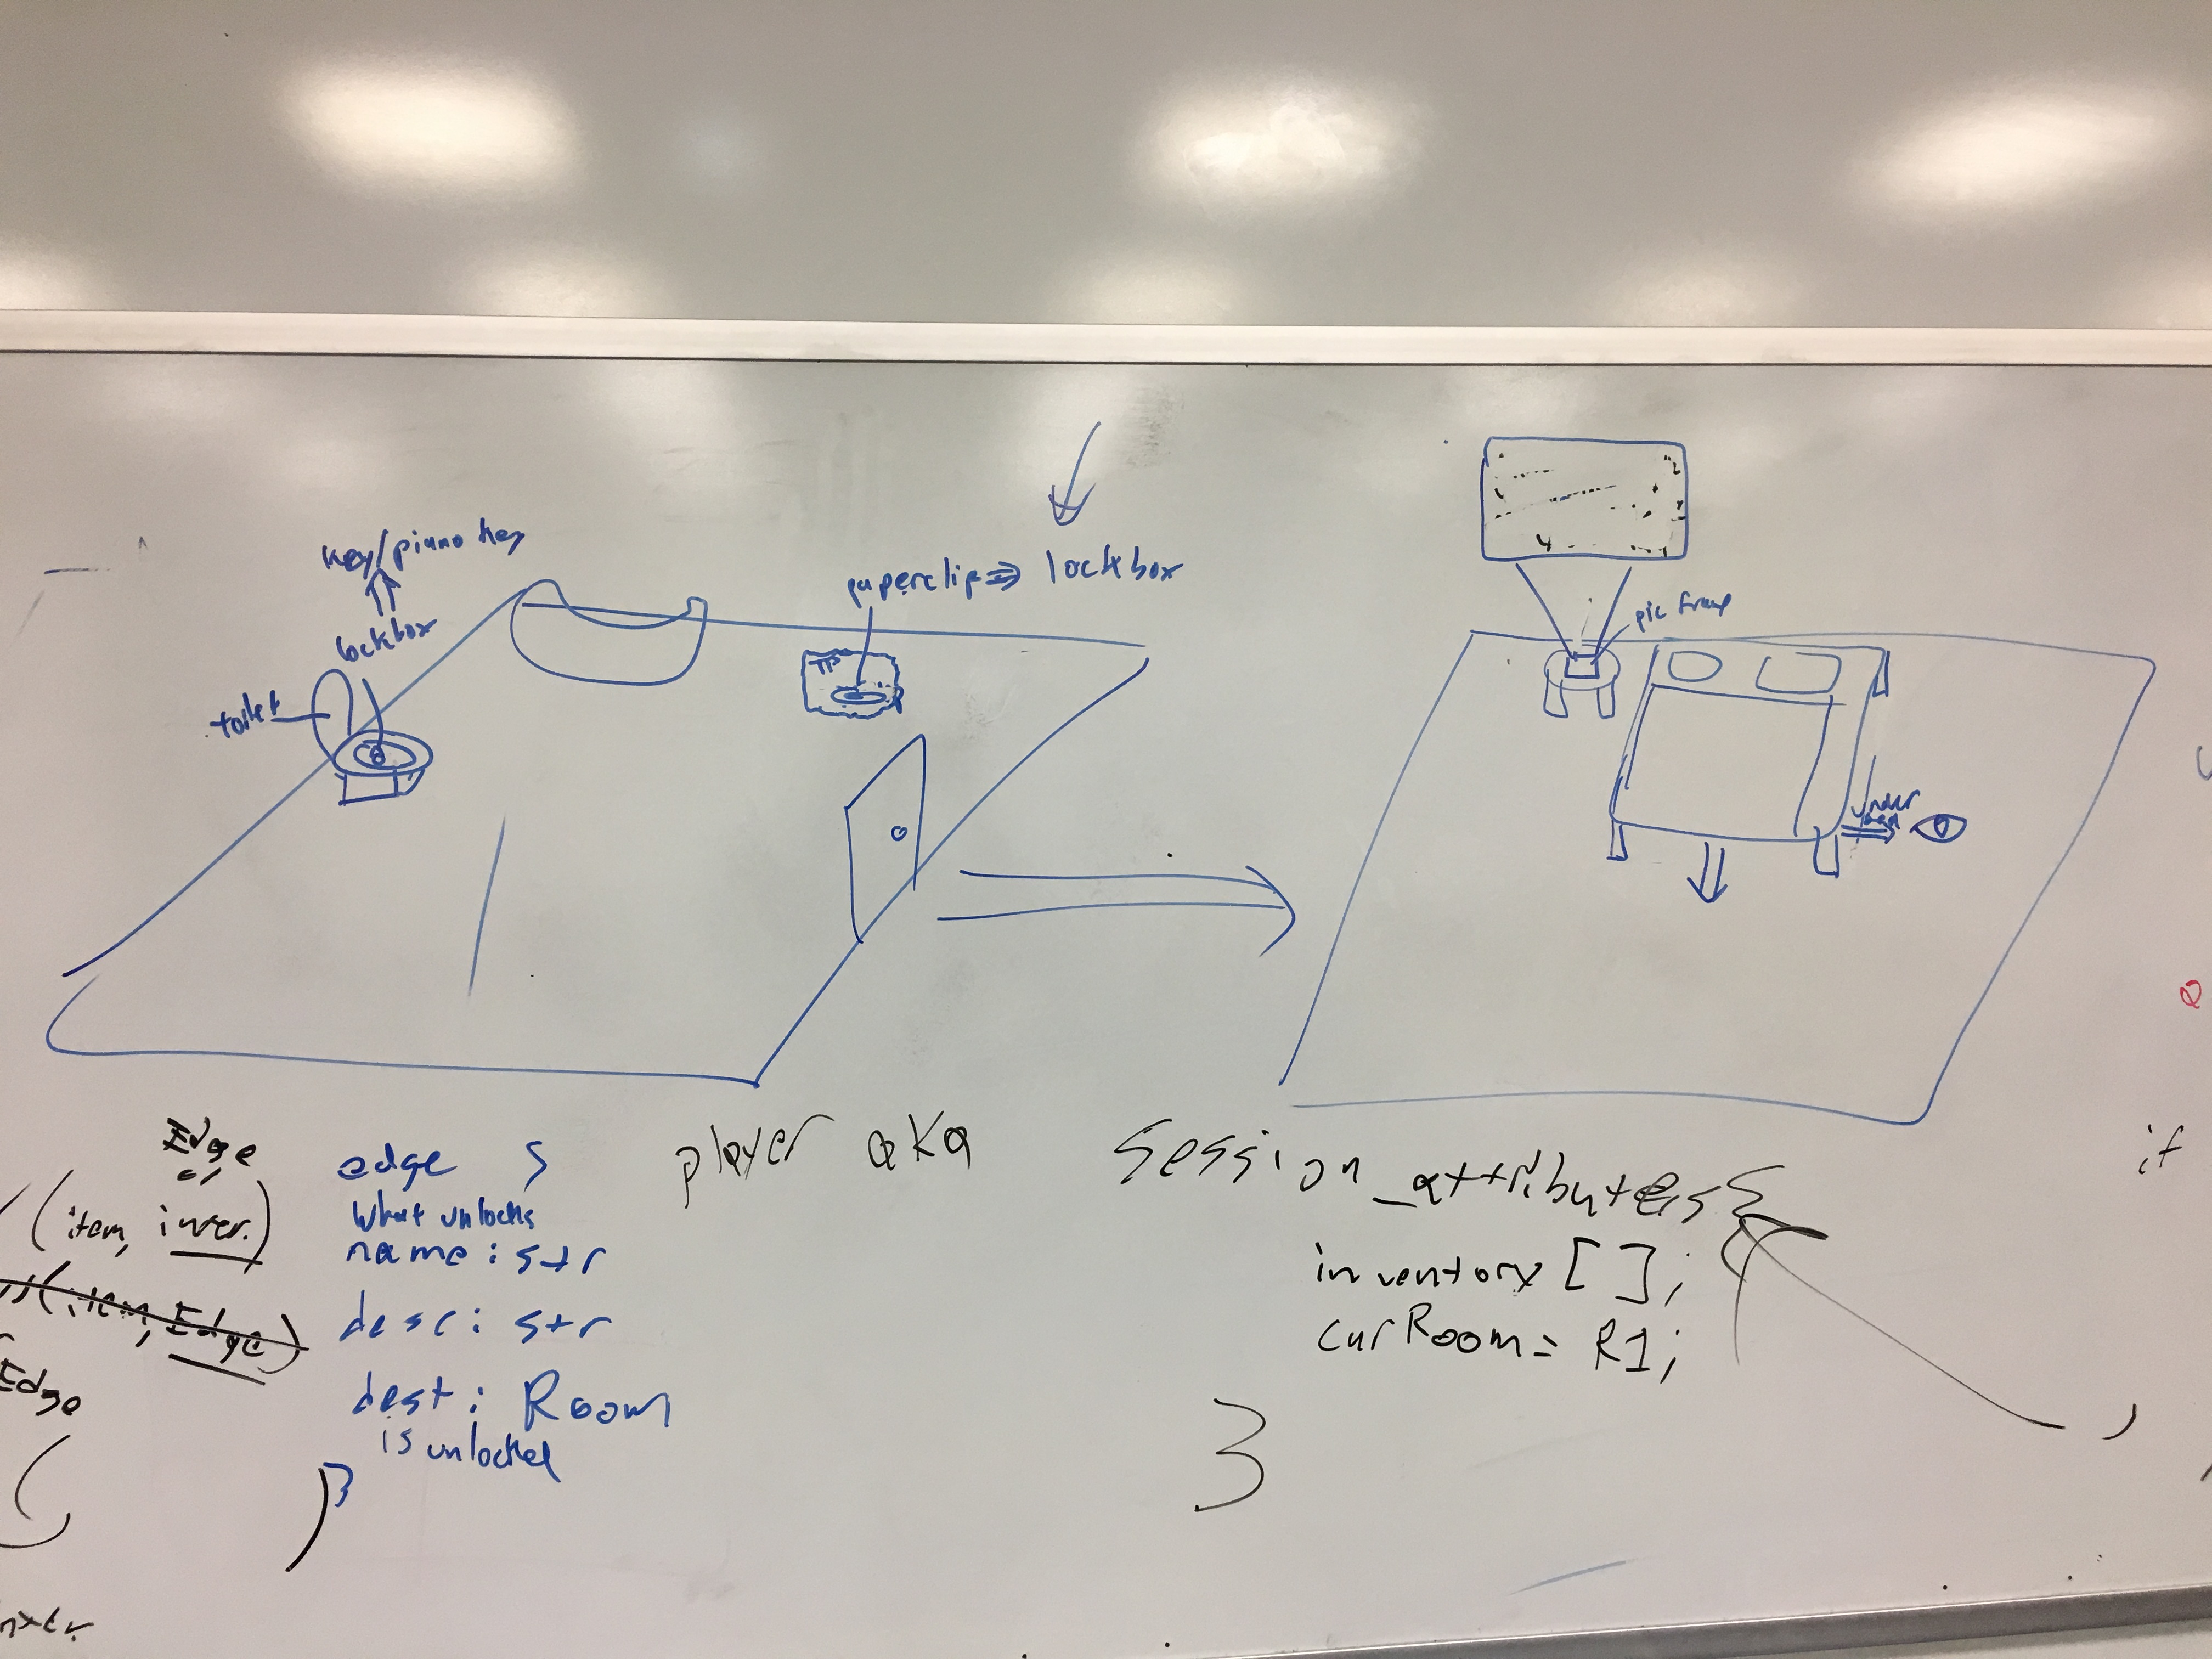 key/piano key
lockbox
toilet
paperclip ⇒ lockbox
TP
pic frame
under
Edge
(item, inver.)
(item, Edge)
Edge
edge {
What unlocks
name : str
desc : str
dest : Room
is unlocked
}
player aka session_attributes {
inventory [ ];
curRoom = R1;
}
if